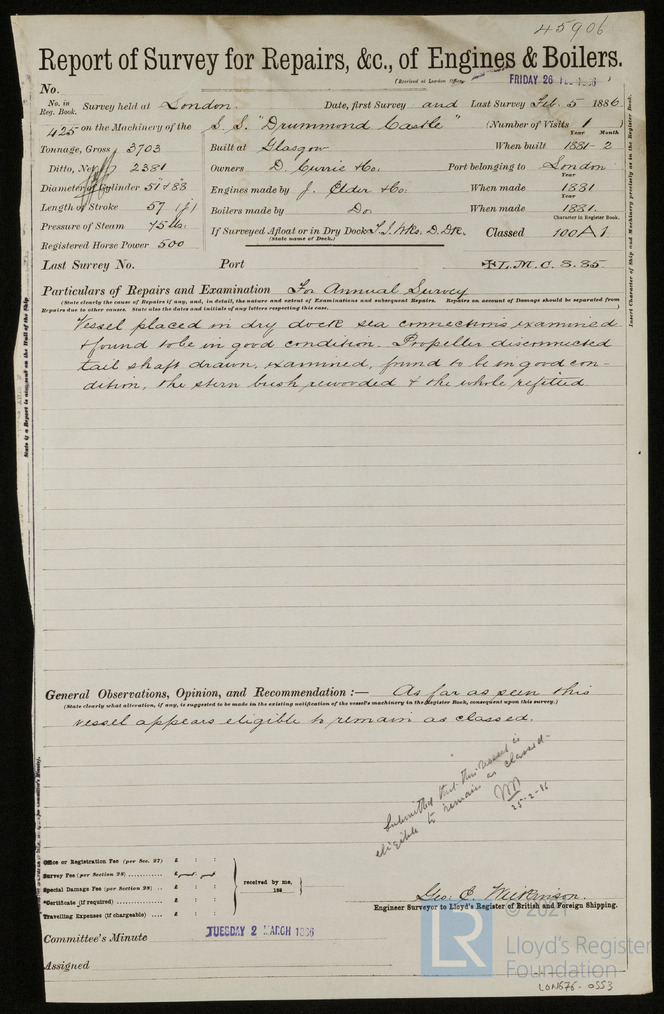 45906
Report of Survey for Repairs, &c., of Engines & Boilers.
(Received at London Office FRIDAY 26 FEB 1886)
No.
No. in Reg. Book. Survey held at London Date, first Survey and Last Survey Feb. 5 1886
425 on the Machinery of the S.S. "Drummond Castle" (Number of Visits 1)
Year Month
Tonnage, Gross 3703 Built at Glasgow When built 1881-2
Ditto, Net 2381 Owners D. Currie & Co. Port belonging to London
Year
Diameter of Cylinder 51 & 88 Engines made by J. Elder & Co. When made 1881
Year
Length of Stroke 57 Boilers made by Do. When made 1881.
Character in Register Book.
Pressure of Steam 75 lb. If Surveyed Afloat or in Dry Dock T.I.Wks. D. Dk. Classed 100A1
(State name of Dock.)
Registered Horse Power 500
Last Survey No. Port ✠L.M.C. 8.85
Particulars of Repairs and Examination For Annual Survey
(State clearly the cause of Repairs if any, and, in detail, the nature and extent of Examinations and subsequent Repairs. Repairs on account of Damage should be separated from
Repairs due to other causes. State also the dates and initials of any letters respecting this case. )
Vessel placed in dry dock sea connections examined
& found to be in good condition. Propeller disconnected
tail shaft drawn, examined, found to be in good con-
dition, the stern bush rewooded & the whole refitted
General Observations, Opinion, and Recommendation :— As far as seen this
(State clearly what alteration, if any, is suggested to be made in the existing notification of the vessel's machinery in the Register Book, consequent upon this survey.)
vessel appears eligible to remain as classed.
Submitted that this vessel is
eligible to remain as classed.
25-2-86
Office or Registration Fee (per Sec. 27) £ : :
Survey Fee (per Section 28) £
Special Damage Fee (per Section 28) £ : :
received by me,
188
*Certificate (if required) £ : :
Travelling Expenses (if chargeable) £ : :
Geo. E. Wilkinson.
Engineer Surveyor to Lloyd's Register of British and Foreign Shipping.
Committee's Minute TUESDAY 2 MARCH 1886
Assigned
Insert Character of Ship and Machinery precisely as in the Register Book.
State if a Report is also sent on the Hull of the Ship.
LR
© 2021
Lloyd's Register
Foundation
LON676-0553